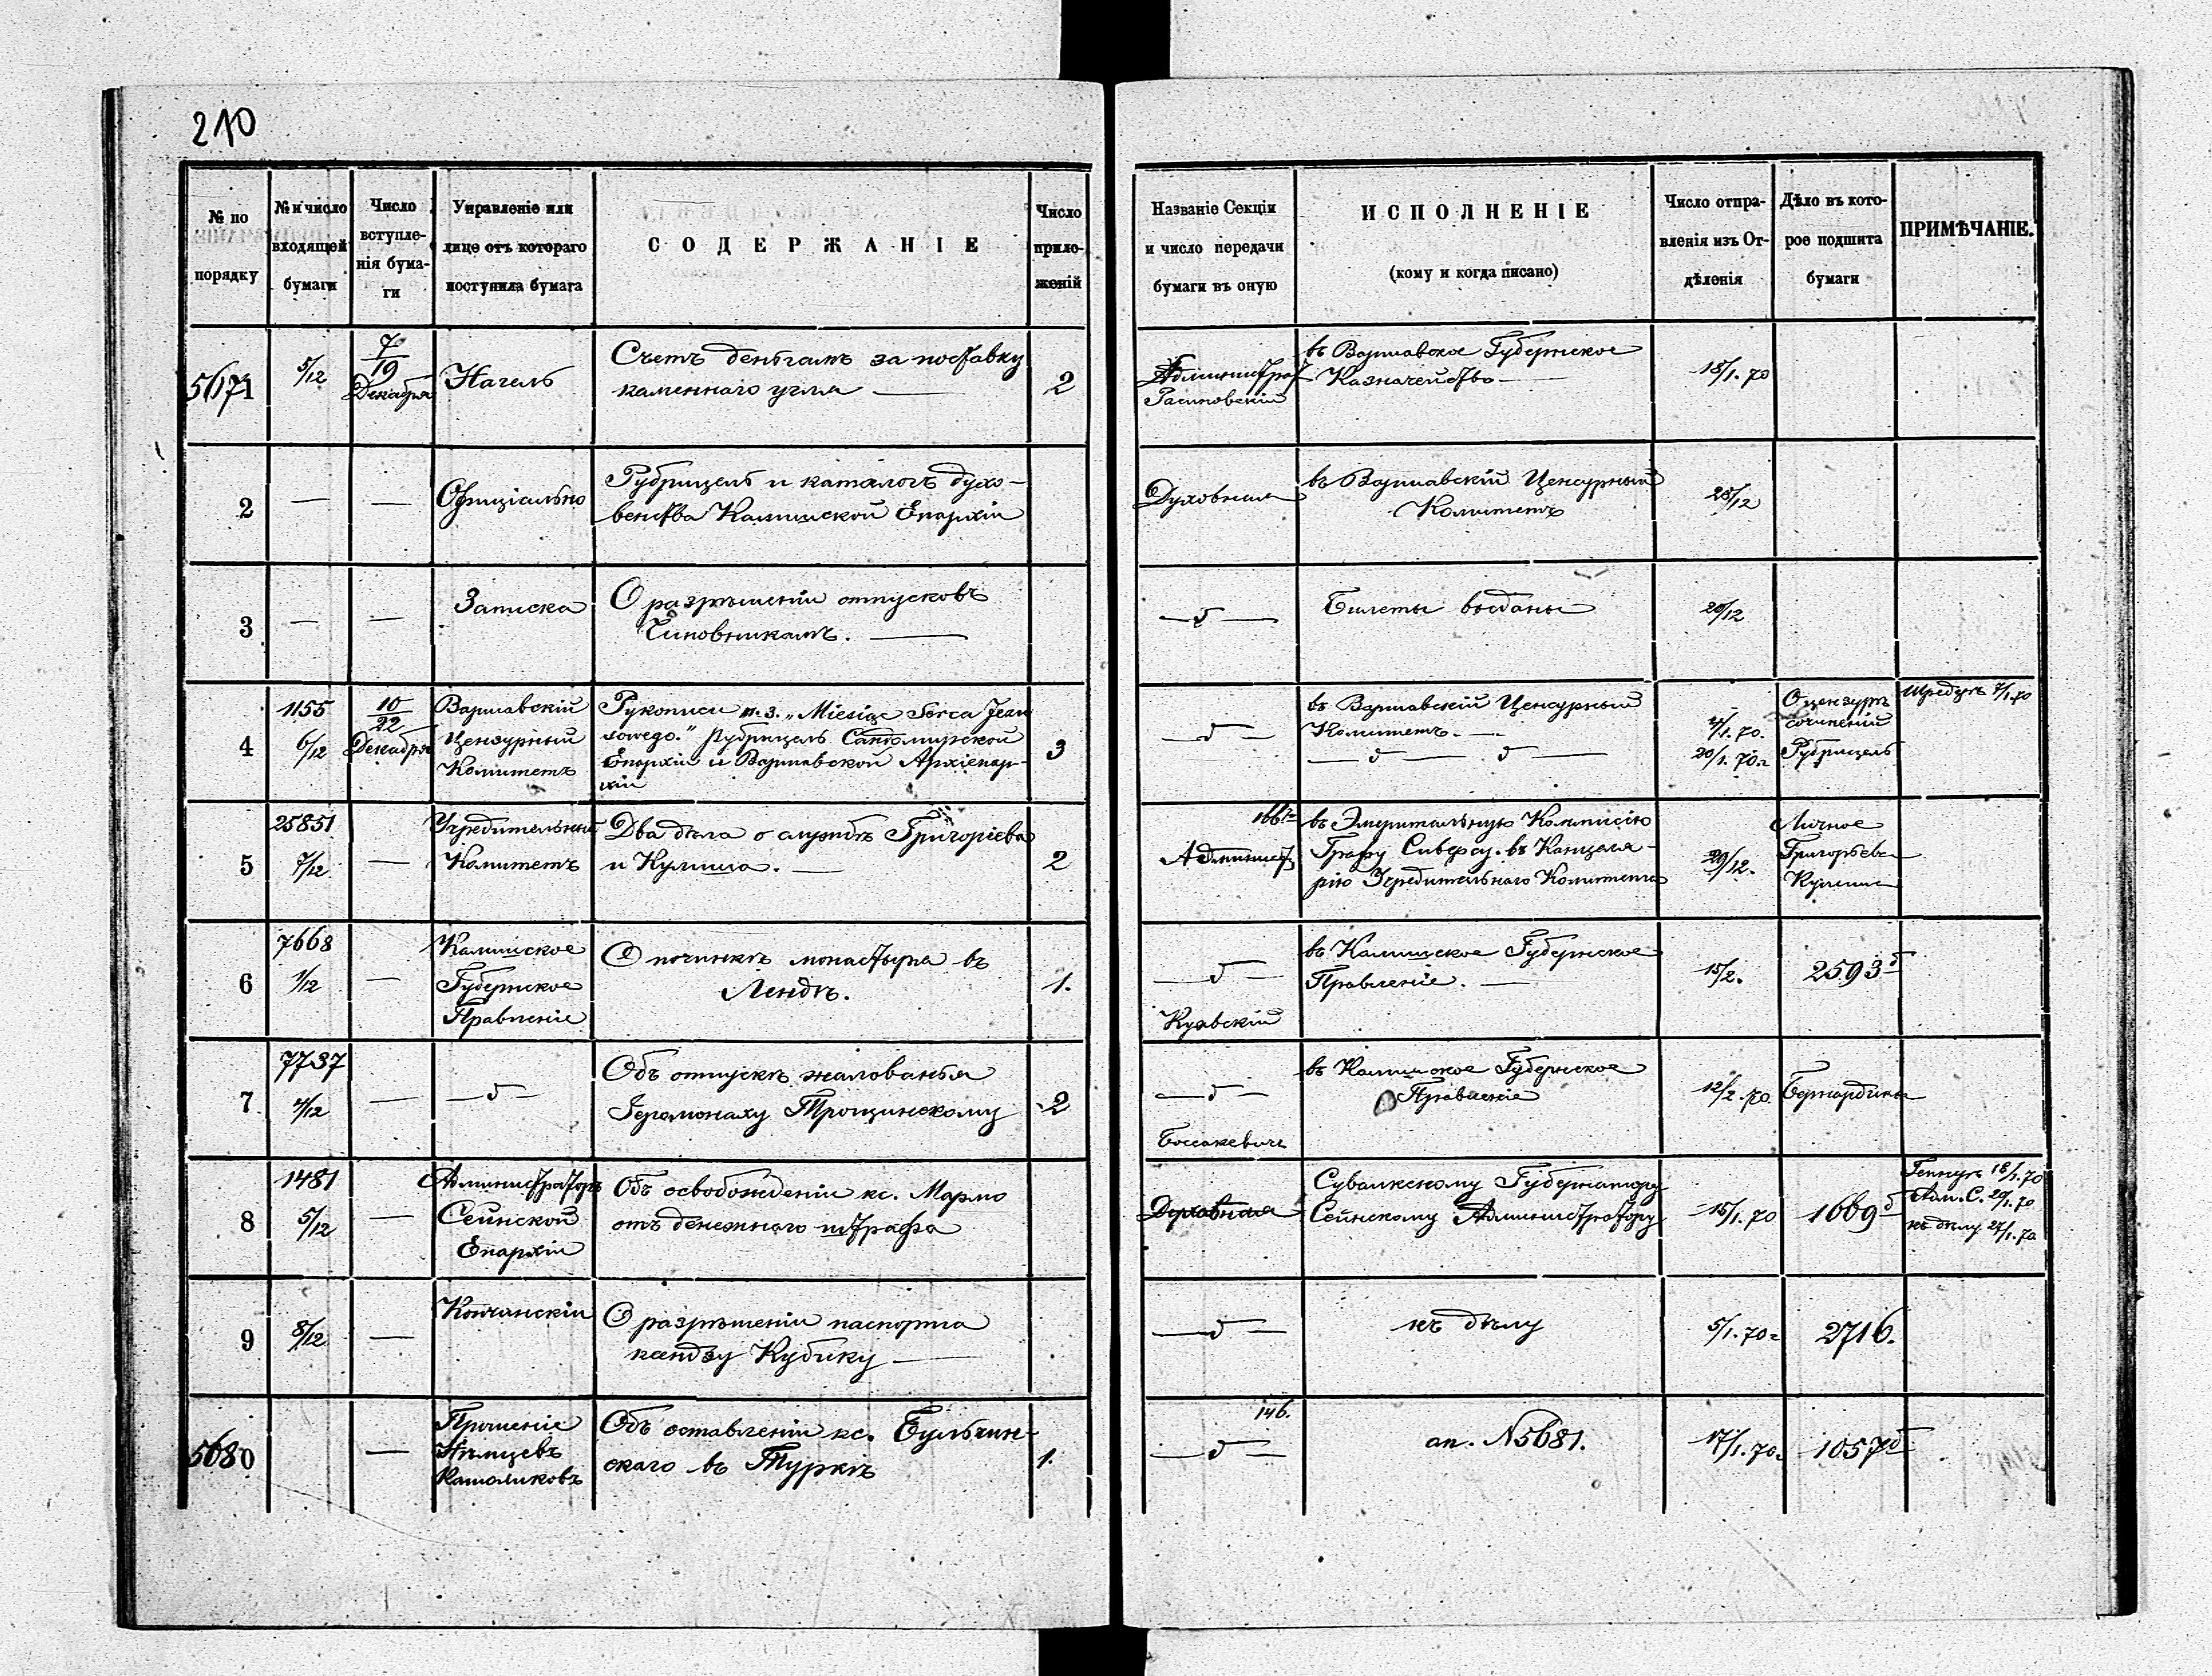 210
№ по порядку
№ и число входящей бумаги
Число вступле-
нія бума-
ги
Управленіе или
лице отъ котораго
поступила бумага
СОДЕРЖАНІЕ
Число
прило-
женій
Названіе Секціи
и число передачи
бумаги въ оную
ИСПОЛНЕНІЕ
(кому и когда писано)
Число отпра-
вленія изъ От-
дѣленія
Дѣло въ кото-
рое подшита
бумаги
ПРИМѢЧАНІЕ.
5671
5/12
7/19
Декабря
Нагель
Счетъ деньгамъ за поставку
каменнаго угля —
2
Администрат
въ Варшавское Губернское
Казначейство —
18/1.70
2
—
—
Офиціально
Рубрицель и каталогъ духо-
венства Калишской Епархіи
Духовная
въ Варшавскій Цензурный
Комитетъ
3
—
—
Записка
О разрѣшеніи отпусковъ
Чиновникамъ. —
— " —
Билеты выданы
20/12
4
1155
6/12
10/22
Декабря
Варшавскій
Цензурный
Комитетъ
Рукописи п. з. „Miesiąc Serca Jezu
sowego.” Рубрицель Сандомирской
Епархіи и Варшавской Архіепар-
хіи
3
— " —
въ Варшавскій Цензурный
Комитетъ. —
— " — " —
4/1.70.
20/1.70.
О цензурѣ
сочиненій
Рубрицель
7/1.70
5
25851
7/12
—
Учредительный
Комитетъ
Два дѣла о службѣ Григорьева
и Кулиша. —
2
Админист
въ Эмеритальную Коммисію
Графу Сиверсу. въ Канцеля-
рію Учредительнаго Комитета
29/12.
Личное
Григорьева
Кулиша
6
7668
1/12
—
Калишское
Губернское
Правленіе
О починкѣ монастыря въ
Лендѣ.
1.
— " —
Куявскій
въ Калишское Губернское
Правленіе. —
15/2.
2593
7
7737
4/12
—
— " —
Объ отпускѣ жалованья
Іеромонаху Трощинскому
2
— " —
Боссакевичъ
въ Калишское Губернское
Правленіе
12/2.70
Бернардины
8
1481
5/12
—
Администраторъ
Сейнской
Епархіи
Объ освобожденіи кс. Мармо
отъ денежнаго штрафа
Духовная
Сувалкскому Губернатору
Сейнскому Администратору
15/1.70
1669
18/1.70
Адм. С. 20/1.70
къ дѣлу 27/1.70
9
8/12
—
Кончинскій
О разрѣшеніи паспорта
ксендзу Кубику —
— " —
къ дѣлу
5/1.70
2716.
5680
—
Прошеніе
Нѣмцевъ
Католиковъ
Объ оставленіи кс. Бульчин-
скаго въ Туркѣ
1.
146.
— " —
ап. N5681.
17/1.70
1057